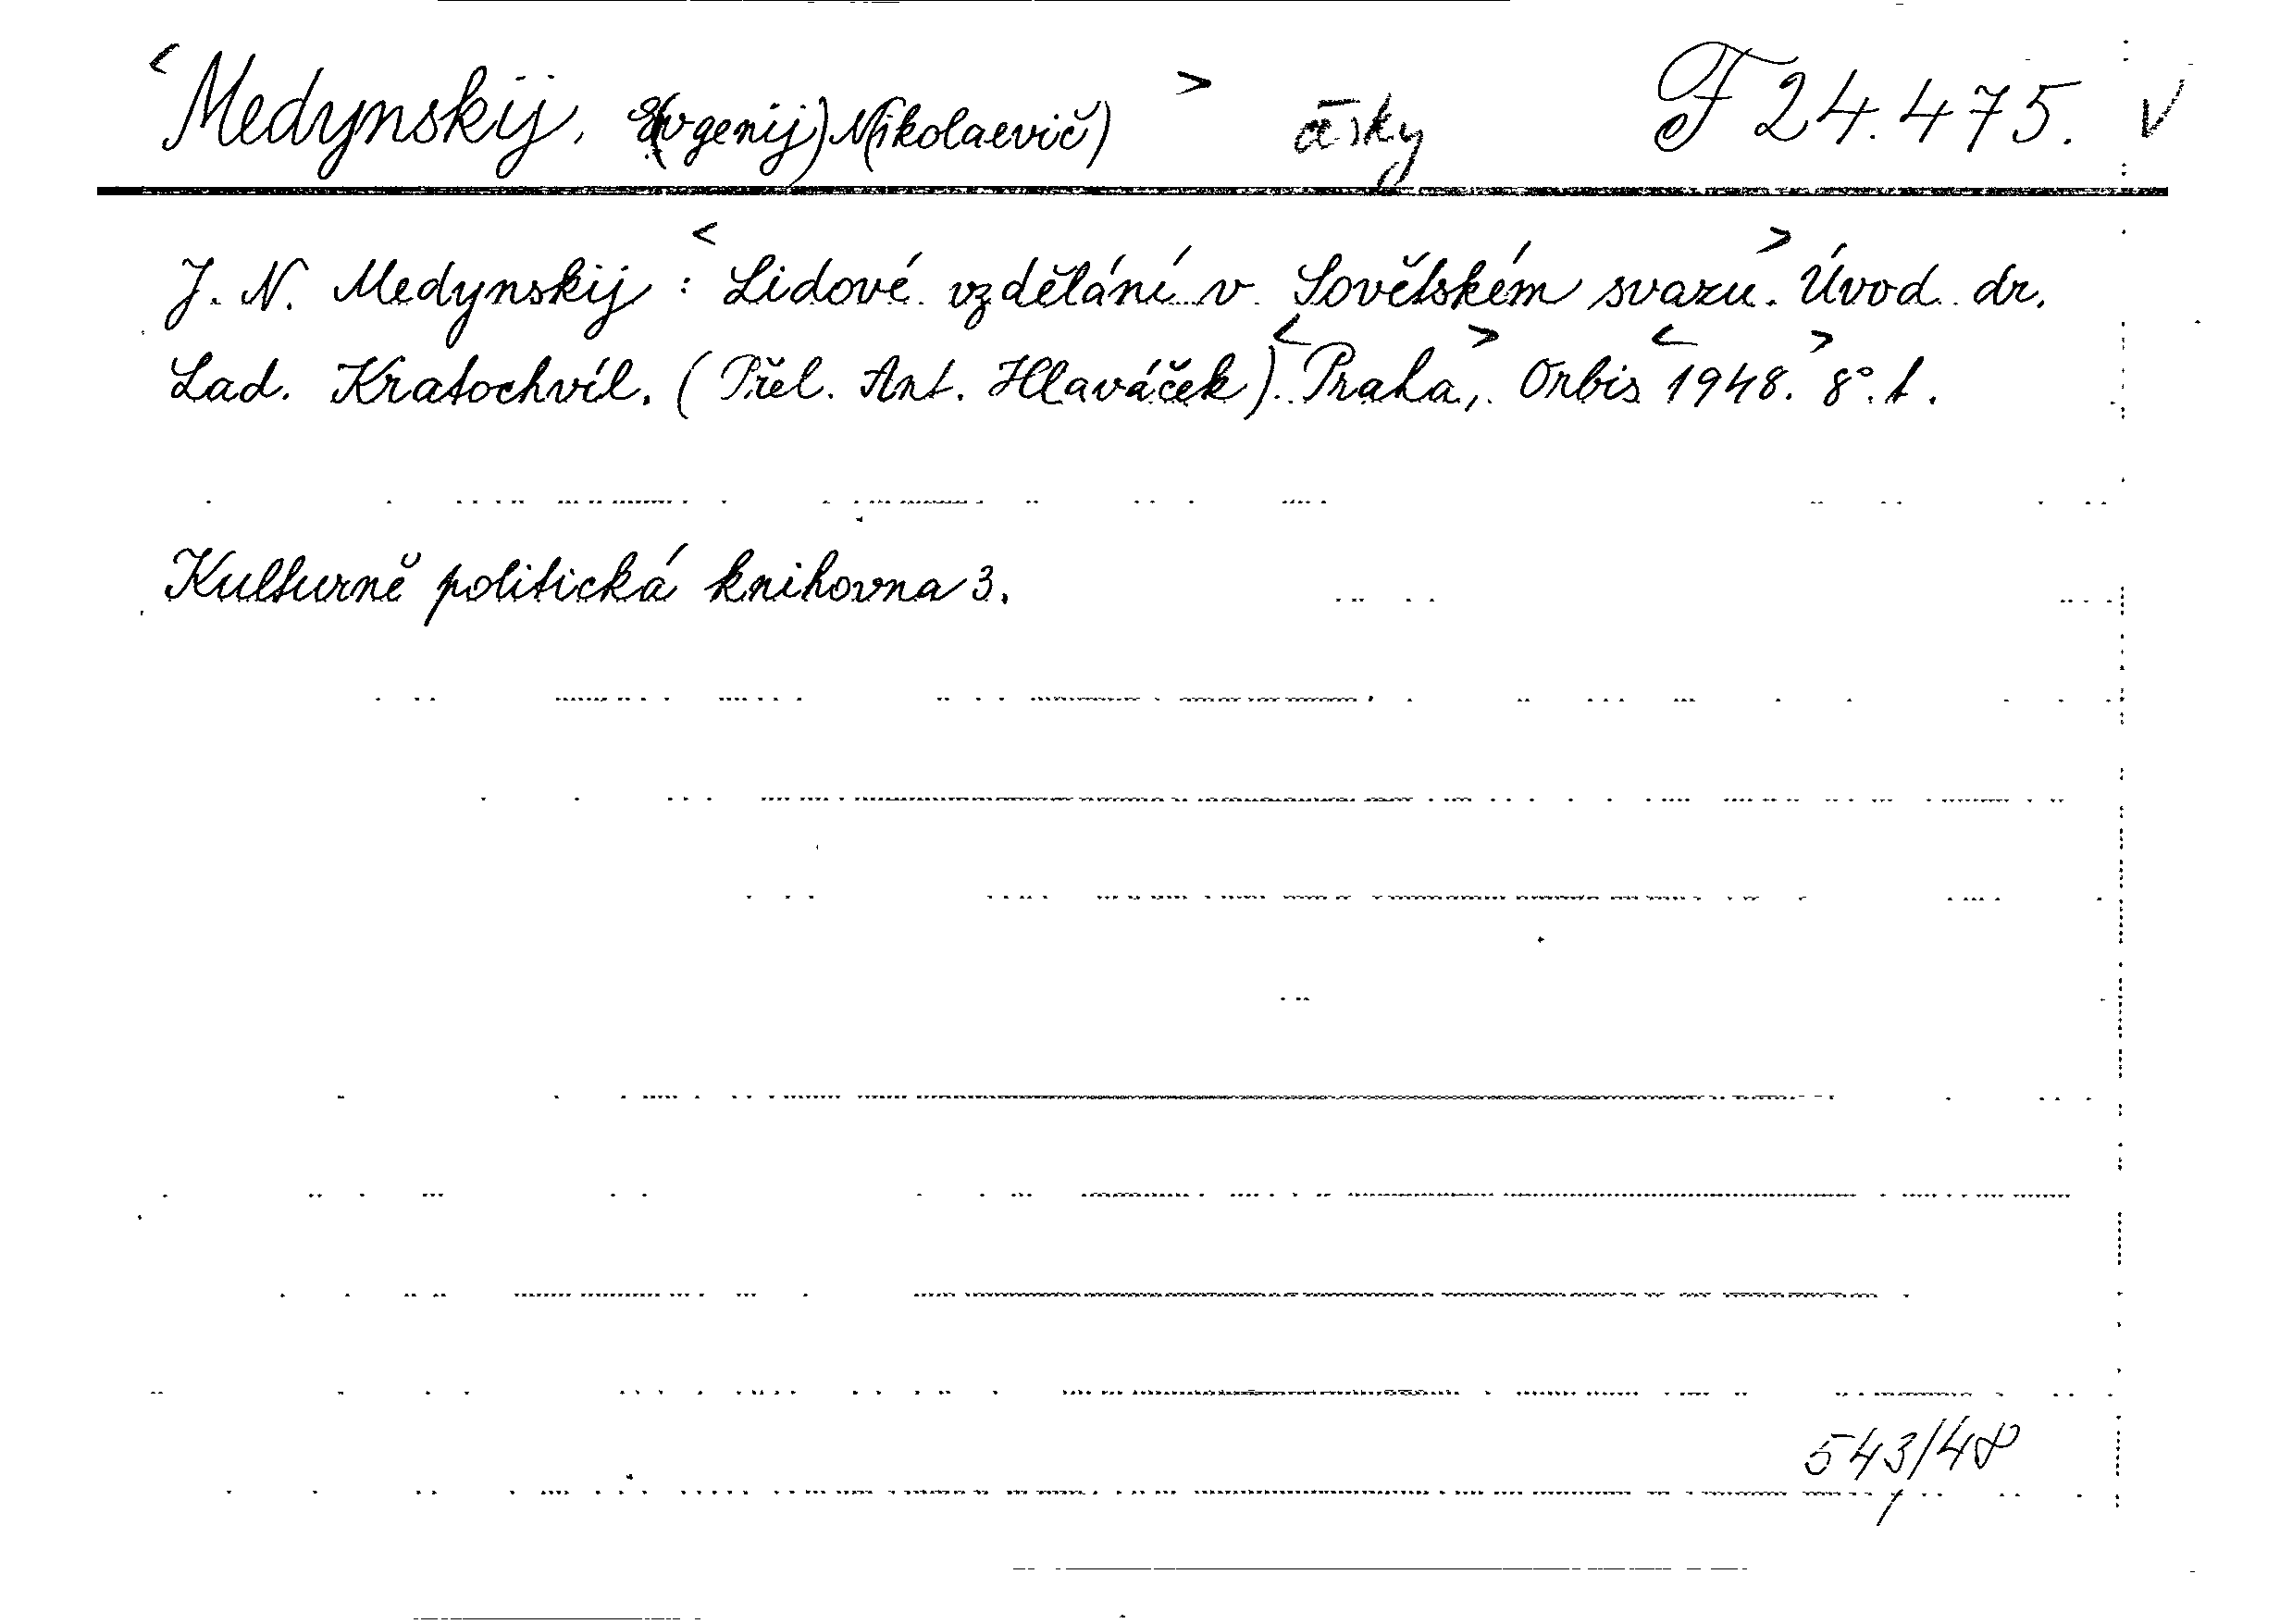 <Medynskij, E(vgenij) N(ikolaevič)> česky F 24.475. V
J. N. Medynskij: <Lidové vzdělání v Sovětském svazu.> Úvod dr.
Lad. Kratochvíl. (Přel. Ant. Hlaváček). <Praha,> Orbis <1948.> 8°. 1.
Kulturně politická knihovna 3.
543/48